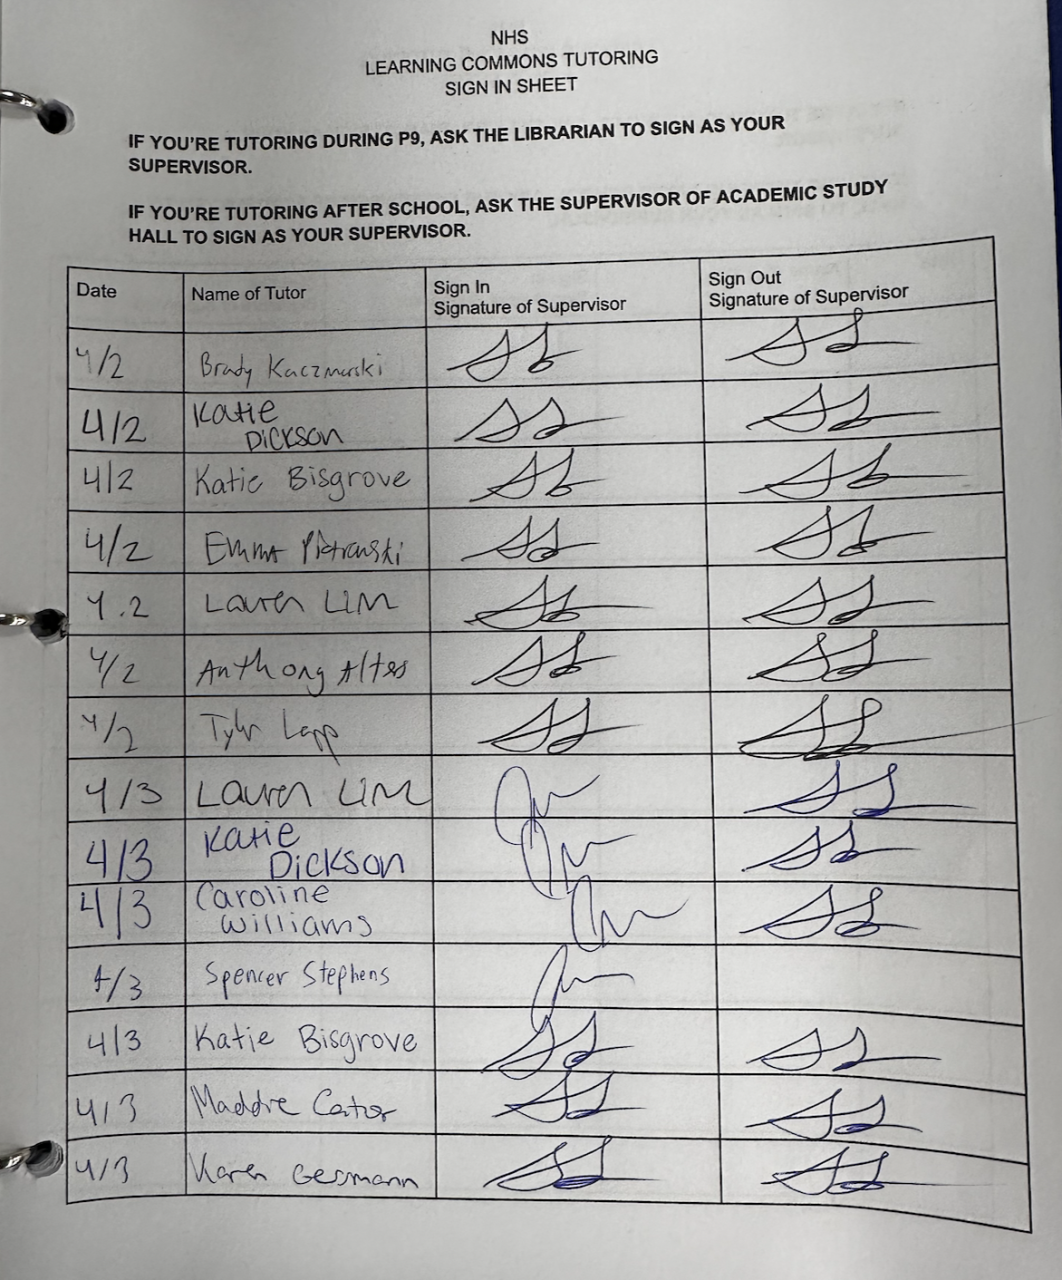 NHS
LEARNING COMMONS TUTORING
SIGN IN SHEET
IF YOU'RE TUTORING DURING P9, ASK THE LIBRARIAN TO SIGN AS YOUR
SUPERVISOR.
IF YOU'RE TUTORING AFTER SCHOOL, ASK THE SUPERVISOR OF ACADEMIC STUDY
HALL TO SIGN AS YOUR SUPERVISOR.
Date Name of Tutor Sign In Sign Out
Signature of Supervisor Signature of Supervisor
4/2 Brady Kaczmarski
4/2 Katie
Dickson
4/2 Katie Bisgrove
4/2 Emma
4.2 Lauren Lim
4/2 Anthony
4/2 Tyler Lapp
4/3 Lauren Lim
4/3 Katie
Dickson
4/3 Caroline
Williams
4/3 Spencer Stephens
4/3 Katie Bisgrove
4/3 Maddie
4/3 Karen